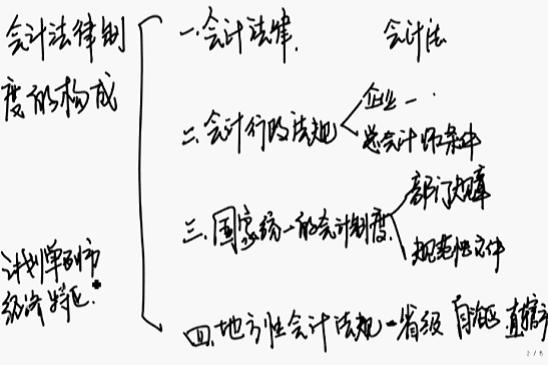 会计法律制
度的构成
一.会计法律. 会计法
二.会计行政法规
企业一.
总会计师条件
三.国家统一的会计制度
部门规章
规范性文件
计划单列市
经济特区.
四.地方性会计法规-省级 自治区 直辖市
2/6